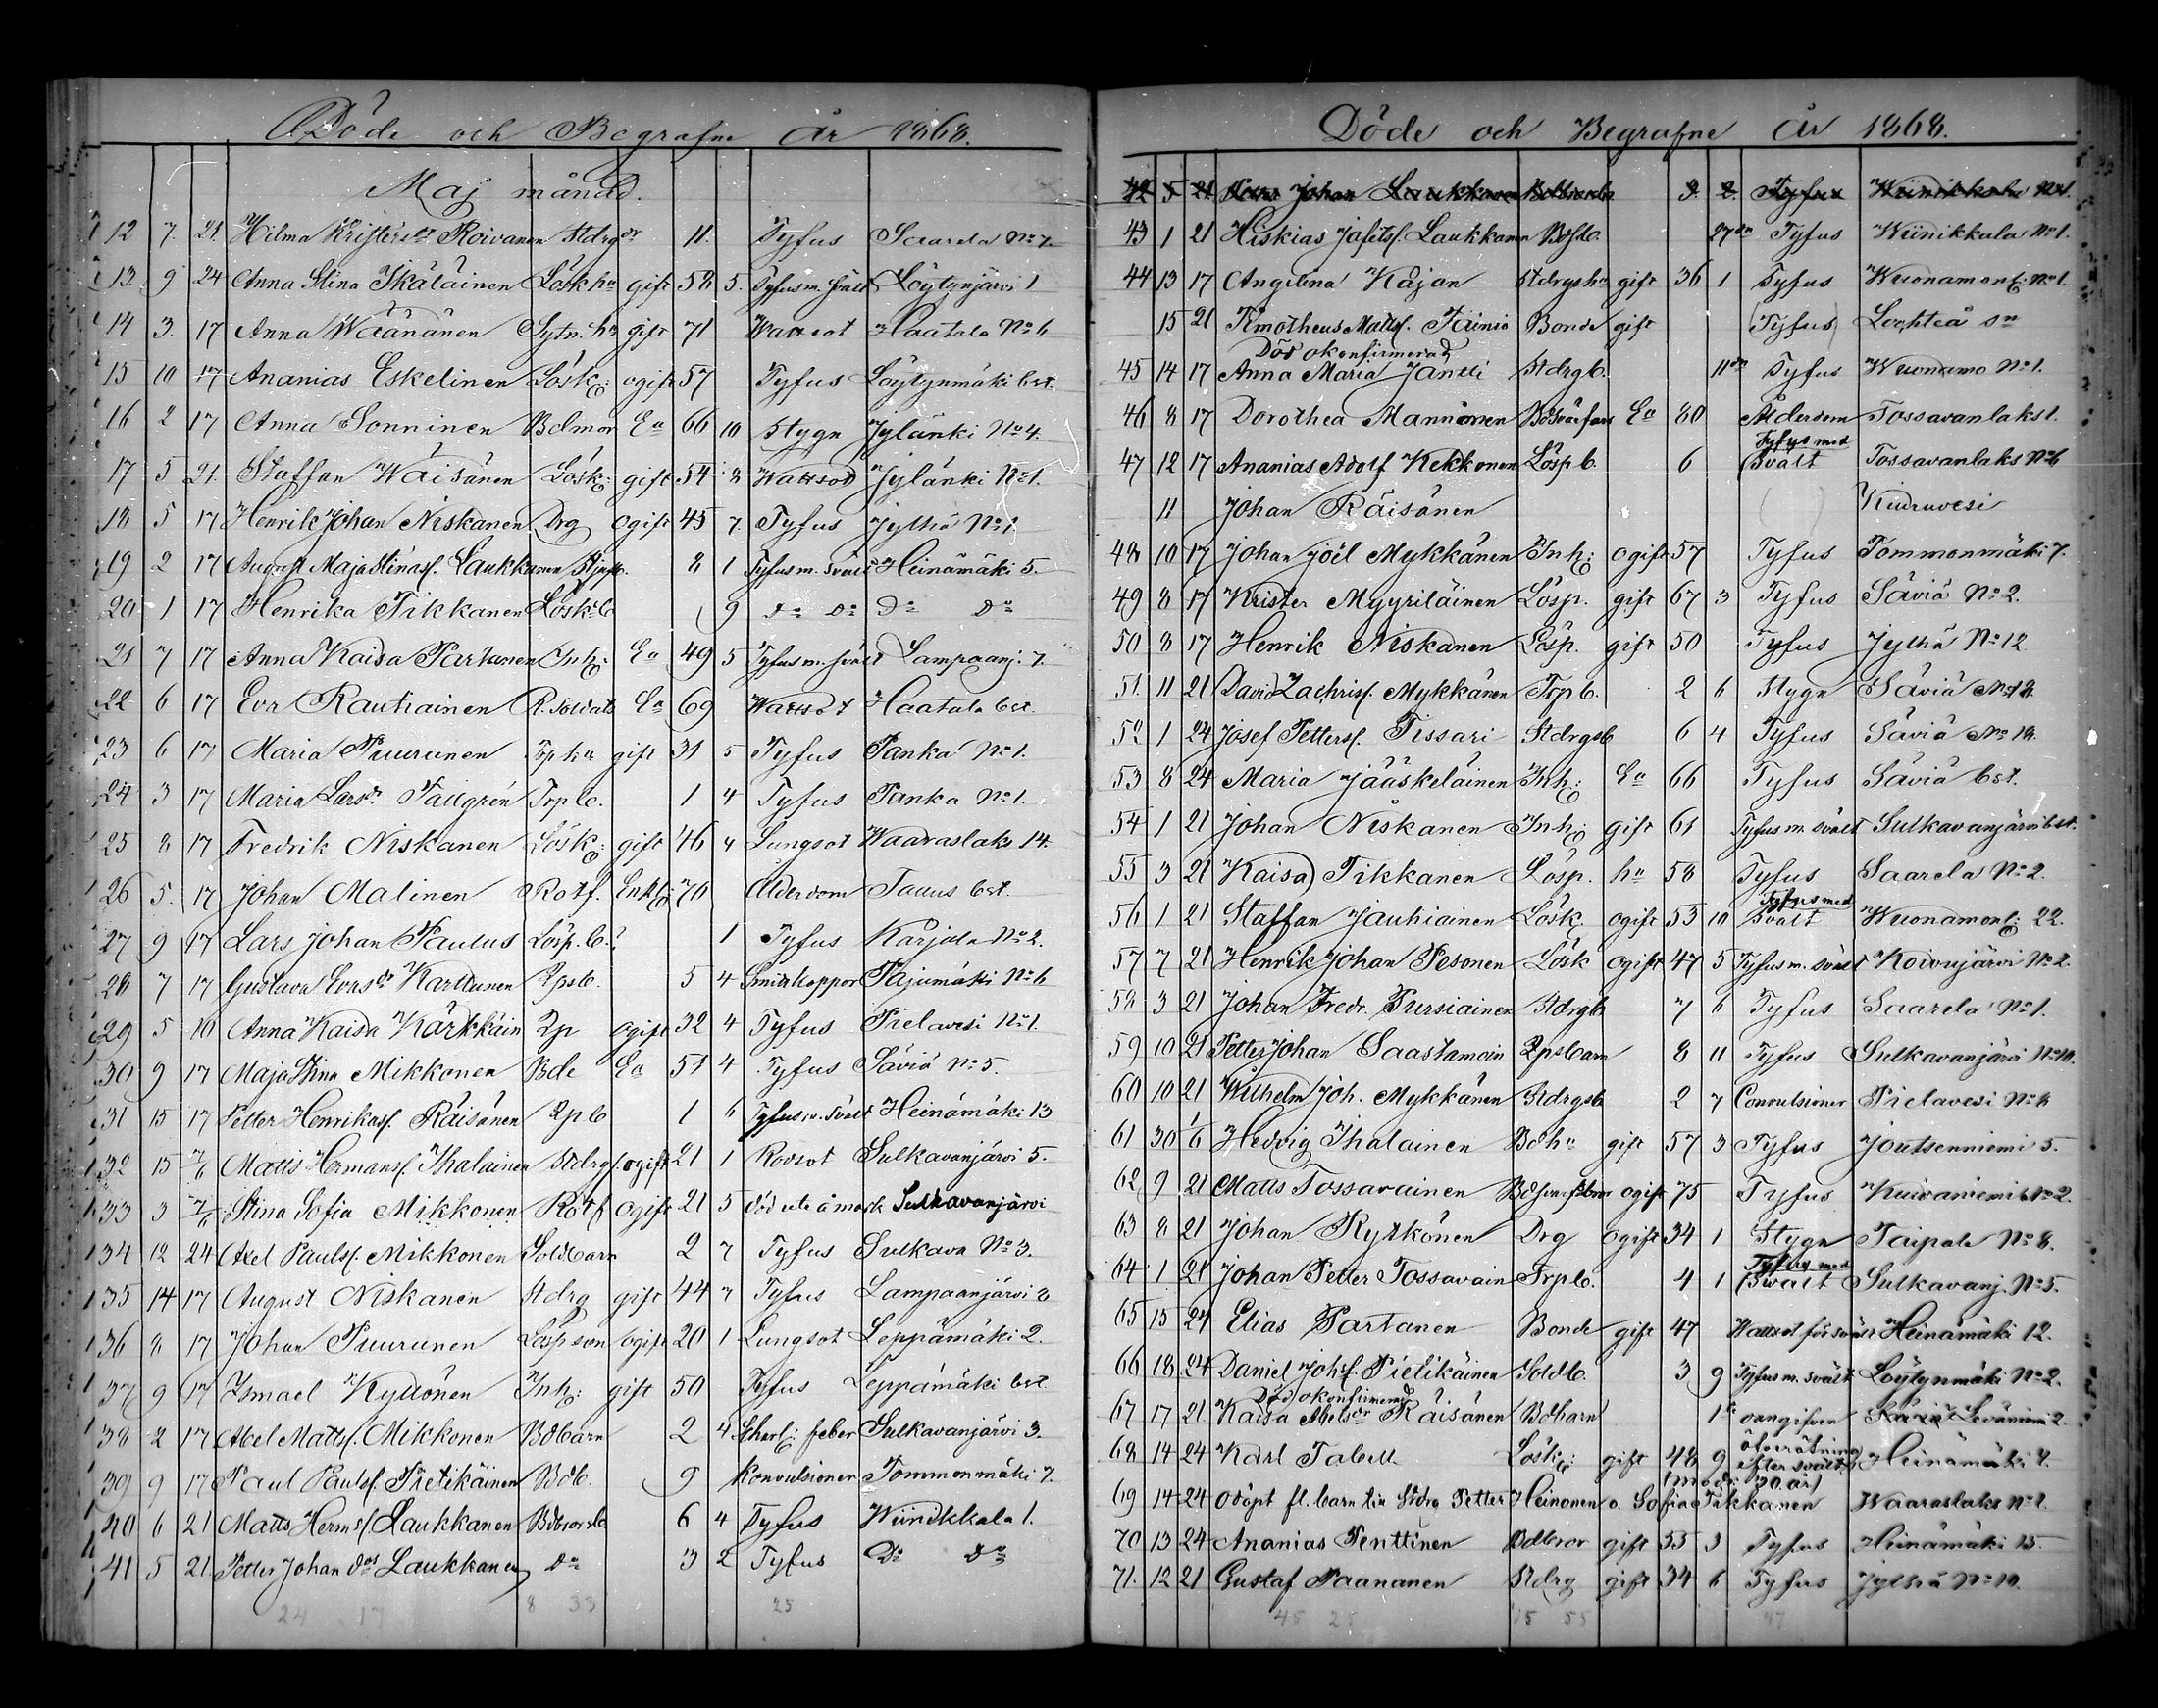 Döde och Begrafne År 1868.
Maj månad.
12 7. 21. Hilma Kristersdr Roivanen Stdrgdr 11. Tyfus Saarela No 7.
13. 9 24 Anna Stina Ikäläinen Lösk hu gift 58 5. Tyfus m. svält Löytynjärvi 1
14 3. 17. Anna Wäänänen Sytn. hu gift 71 Wattsot Haatala No 6
15 10 17 Ananias Eskelinen Lösk: ogift 57 Tyfus Löytynmäki bst.
16 2 17 Anna Sonninen Bdmor Ea 66 10 Stygn Jylänki No 4.
17 5 21. Staffan Wäisänen Lösk: gift 54 8 Wattsot Jylänki No 1.
18 5 17 Henrik Johan Niskanen Drg ogift 45 7. Tyfus Jylhä No 1
19 2 17 August Maja Stinas. Laukkanen 8 1 Tyfus m. svält Heinämäki 5.
20 1 17 Henrika Tikkanen Lösk: b 9 do do Do do
21 7 17 Anna Kaisa Partanen Inh: Ea 49 5 Tyfus m. svält Lampaanj. 7.
22 6 17 Eva Rautiainen R. soldats Ea 69 Wattsot Haatala bst.
23 6 17 Maria Puurunen Trp hu gift 31 5 Tyfus Panka No 1.
24 3 17 Maria Larsdr Tallgrén Trp b. 1 4 Tyfus Panka No 1.
25 8 17 Fredrik Niskanen Lösk: gift 46 4 Lungsot Waaraslaks 14.
26 5. 17 Johan Malinen Rotf. Enkl: 70 Ålderdom Tauus bst.
27 9 17 Lars Johan Paulus Lösp. b. 1 Tyfus Karjala No 2.
28 7 17 Gustava Evasdr Karttunen Qpsb. 5 4 Smittkoppor Pajumäki No 6
29 5 10 Anna Kaisa Kärkkäin Qp ogift 32 4 Tyfus Pielavesi No 1.
30 9 17 Maja Stina Mikkonen Bde Ea 51 4 Tyfus Säviä No 5.
31 15 17 Petter Henrikas. Räisänen Qp b 1 6 Tyfus m. svält Heinämäki 13
32 15 7/6 Matts Hermans. Ihalainen Stdrgs. ogift 21 1 Rödsot Sulkavanjärvi 5.
33 3 7/6 Stina Sofia Mikkonen Rotf ogift 21 5 död ute å mark Sulkavanjärvi
34 12 24 Axel Pauls. Mikkonen Soldbarn 2 7 Tyfus Sulkava No 3.
35 14 17 August Niskanen Stdrg gift 44 7 Tyfus Lampaanjärvi 2
36 8 17 Johan Puurunen Lösp son ogift 20 1 Lungsot Leppämäki 2.
37 9 17 Ismael Kyllönen Inh: gift 50 Tyfus Leppämäki bst.
38 2 17 Abel Matts. Mikkonen Bdbarn 2 4 Skarl: feber Sulkavanjärvi 3.
39 9 17 Paul Pauls. Pietikäinen Bdb. 9 Konvulsioner Tommonmäki 7.
40 6 21 Matts Herms. Laukkanen Bdbrorsb. 6 4 Tyfus Wiinikkala 1.
41 5 21. Petter Johan dos Laukkanen do 3 2 Tyfus Do do
24 17 8 33 25
Döde och Begrafne År 1868.
42 5 21 Johan Laukkanen 3 2. Tyfus Wiinikkala No 1.
43 1 21 Hiskias Jafets. Laukkanen Bdsb. 27 dr Tyfus Wiinikkala No 1.
44 13 17 Angelina Kajan Stdrgshu gift 36 1 Tyfus Wuonamonl: No 1.
15 21 Timotheus Matts. Jäiniö Bonde gift (Tyfus) Lochteå sn
Död okonfirmerad
45 14 17 Anna Maria Jantti Stdrgb. 11 dr Tyfus Wuonamo No 1.
46 8 17 Dorothea Manninen Bdsvärfars Ea 80 Ålderdom Tossavanlaks 1.
Tyfus med
47 12 17 Ananias Adolf Kekkonen Lösp b. 6 Svält Tossavanlaks No 6
11 Johan Räisänen ( ) Kiuruvesi
48 10 17 Johan Joël Mykkänen Inh: ogift 57 Tyfus Tommonmäki 7.
49 8 17 Krister Myyriläinen Lösp. gift 67 3 Tyfus Säviä No 2.
50 8 17 Henrik Niskanen Lösp. gift 50 Tyfus Jylhä No 12
51. 11 21 David Zachris. Mykkänen Trp b. 2 6 Stygn Säviä No 12.
52 1 24 Josef Petters. Tissari Stdrgsb 6 4 Tyfus Säviä No 12.
53 8 24 Maria Jääskeläinen Inh: Ea 66 Tyfus Säviä bst.
54 1 21 Johan Niskanen Inh: gift 61 Tyfus m. svält Sulkavanjärvi bst.
55 3 21 Kaisa Tikkanen Lösp. hu 58 Tyfus Saarela No 2.
Tyfus med
56 1 21 Staffan Jauhiainen Lösk. ogift 53 10 Svält Wuonamonl: 22.
57 7 21 Henrik Johan Pesonen Lösk ogift 47 5 Tyfus m. svält Koivujärvi No 2.
58 3 21 Johan Fredr. Pursiainen Stdrgb 7 6 Tyfus Saarela No 1.
59 10 21 Petter Johan Saastamoin Qpsbarn 8 11 Tyfus Sulkavanjärvi No 10.
60 10 21 Wilhelm Joh. Mykkänen Stdrgsb 2 7 Convulsioner Pielavesi No 2
61 30 6 Hedvig Ihalainen Bdhu gift 57 3 Tyfus Joutsenniemi 5.
62 9 21 Matts Tossavainen ogift 75 Tyfus Kuivaniemi No 2.
63 8 21 Johan Rytkönen Drg ogift 34 1 Stygn Taipale No 8.
Tyfus med
64 1 21 Johan Petter Tossavain Trp b. 4 1 Svält Sulkavanj. No 5.
65 15 24 Elias Partanen Bonde gift 47 Wattsot för svält Heinämäki 12.
66 18 24 Daniel Johs. Pielikäinen Soldb. 3 9 Tyfus m. svält Löytynmäki No 2.
Död okonfirmerad
67 17 21 Kaisa Abelsdr Räisänen Bdbarn 1 oangifven Leväniemi 2.
öfverätning
68 14 24 Karl Tabell Lösk: gift 48 9 efter svält Heinämäki 4.
(moder 30 år)
69 14 24 odöpt fl. barn till Stdrg Petter Heinonen o. Sofia Tikkanen Waaraslaks No 1.
70 13 24 Ananias Penttinen Bdbror gift 55 3 Tyfus Heinämäki 15.
71. 12 21 Gustaf Paananen Stdrg gift 34 6 Tyfus Jylhä No 10.
45 25 15 55 47